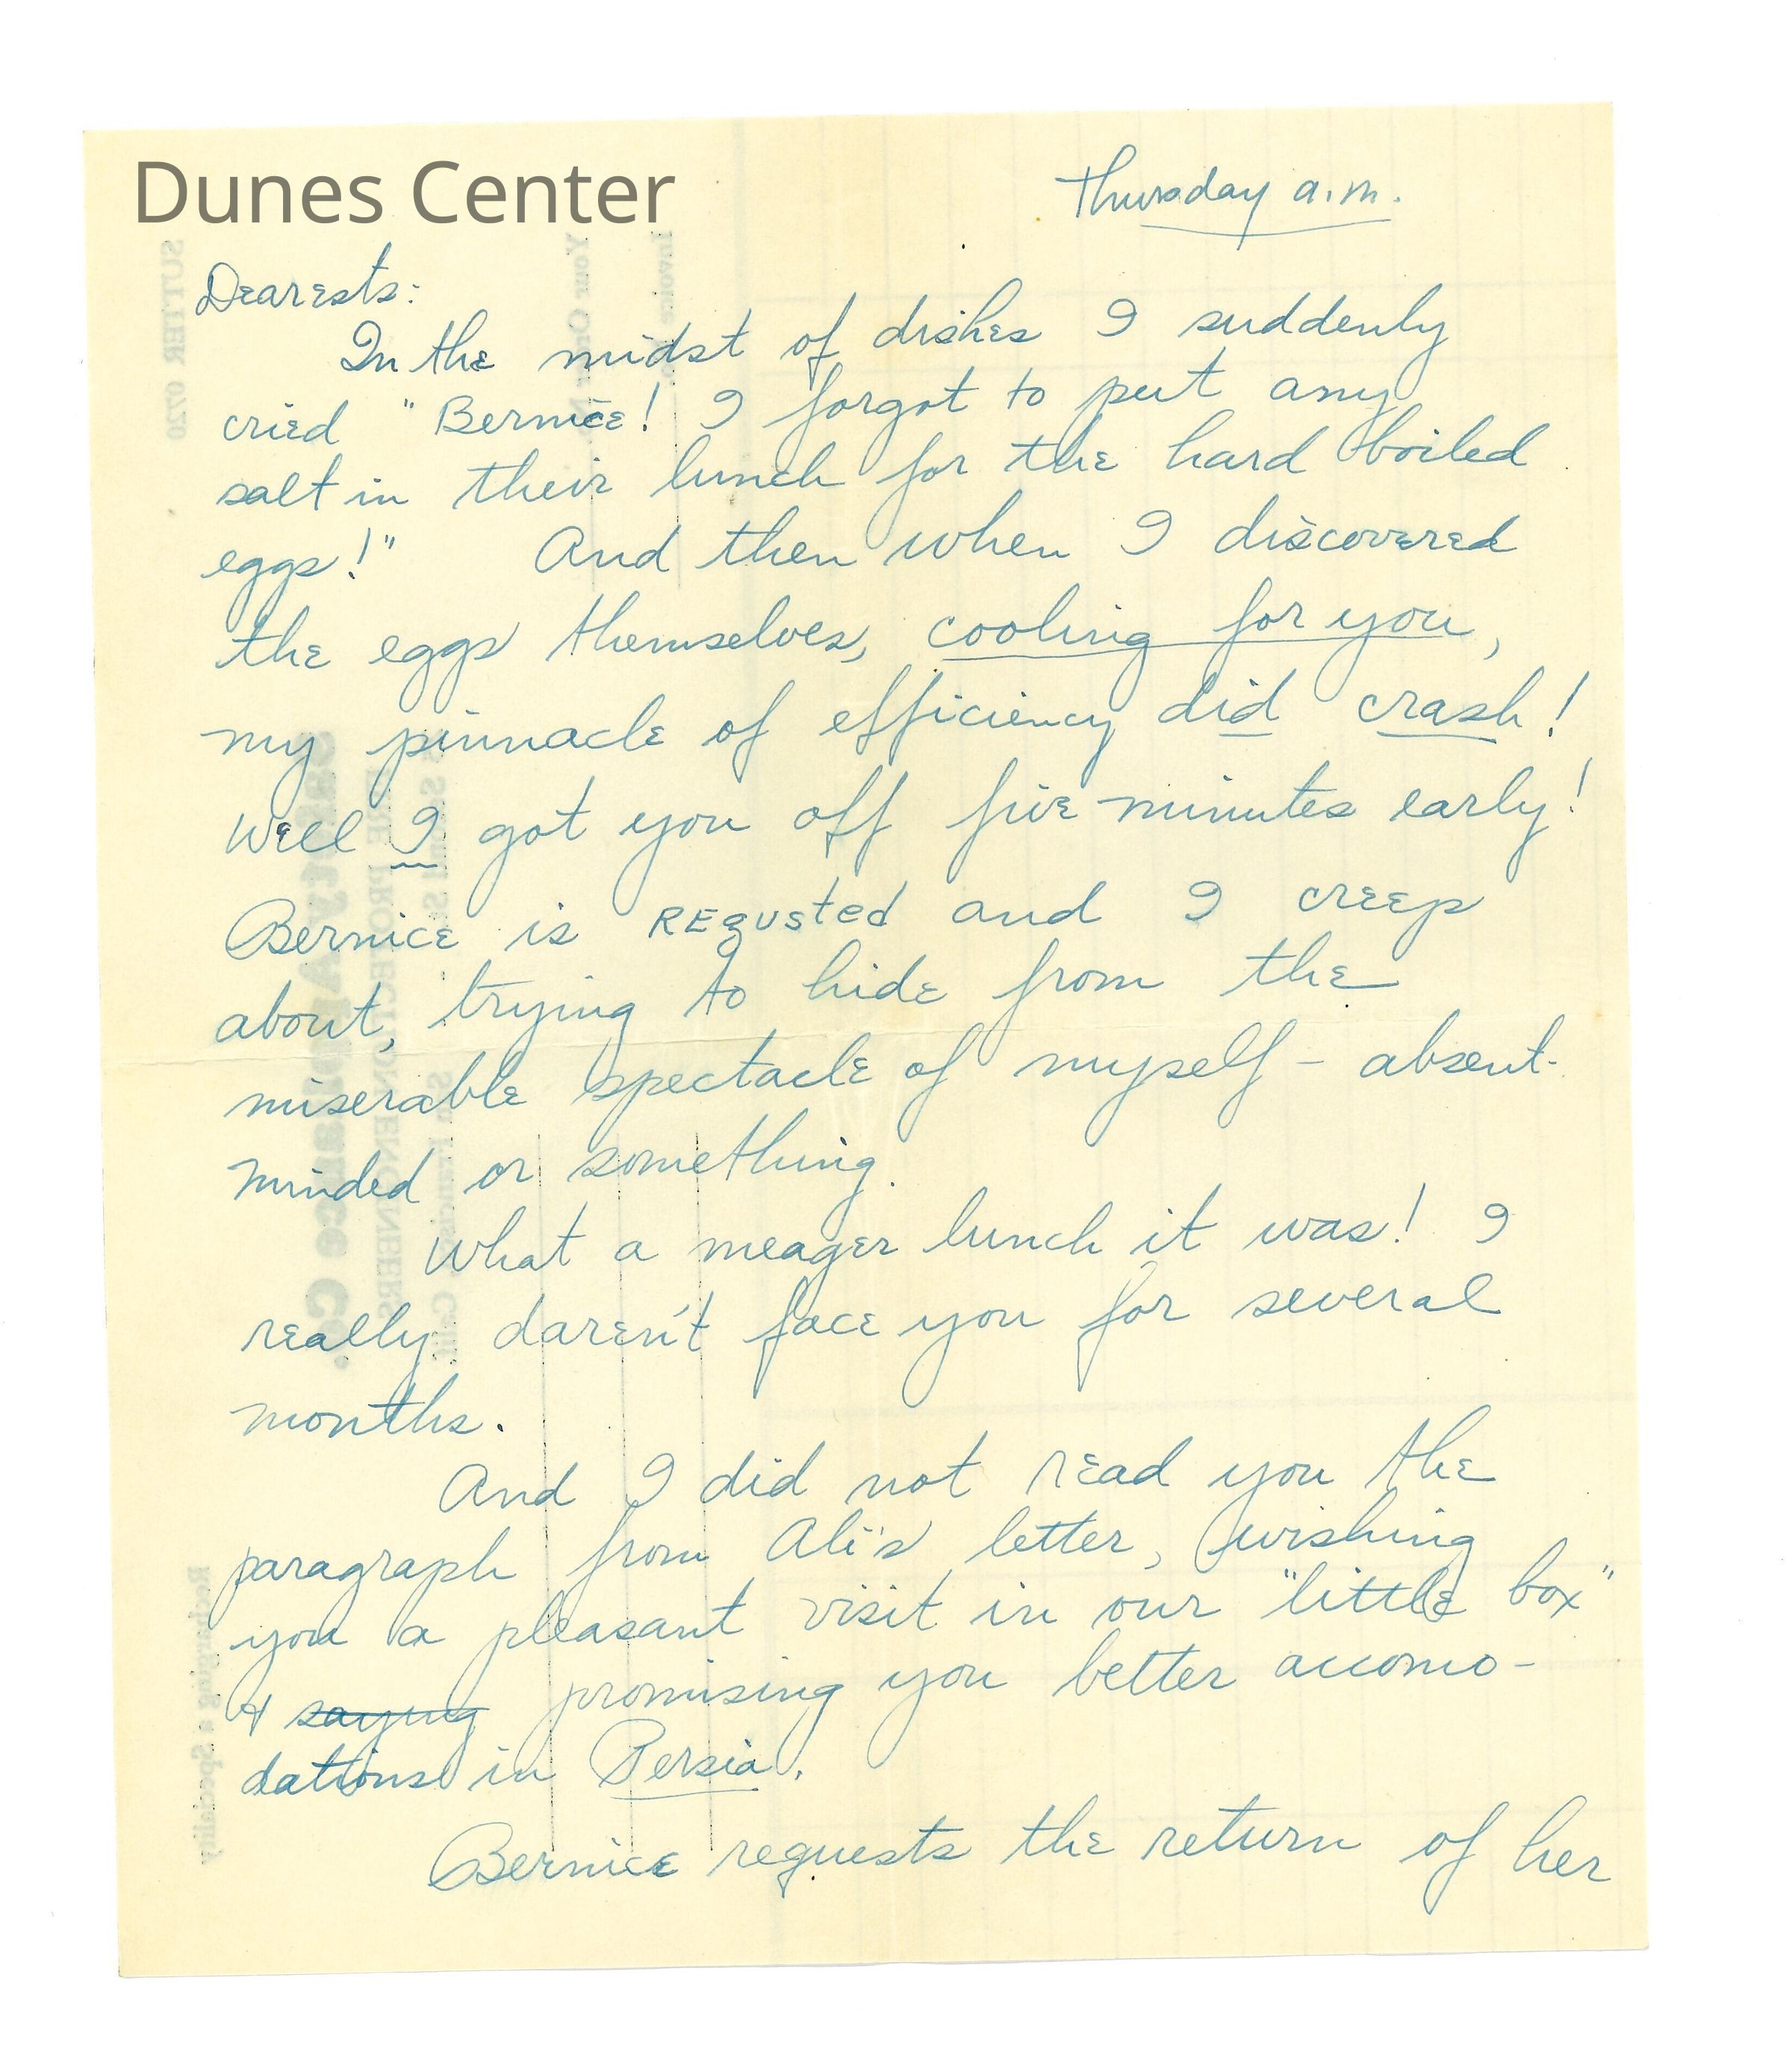 Dunes Center
Thursday a.m.
Dearests:
In the midst of dishes I suddenly
cried "Bernice! I forgot to put any
salt in their lunch for the hard boiled
eggs!" And then when I discovered
the eggs themselves, cooling for you,
my pinnacle of efficiency did crash!
Well I got you off five minutes early!
Bernice is REqusted and I creep
about, trying to hide from the
miserable spectacle of myself - absent-
minded or something.
What a meager lunch it was! I
really daren't face you for several
months.
And I did not read you the
paragraph from Ali's letter, wishing
you a pleasant visit in our "little box"
& saying promising you better accomo-
dations in Persia.
Bernice requests the return of her
SUTTER 0720
Your Order No.
Invoice No.
Safety Appliance Co.
FIRE PROTECTION ENGINEERS
Recharging a Specialty